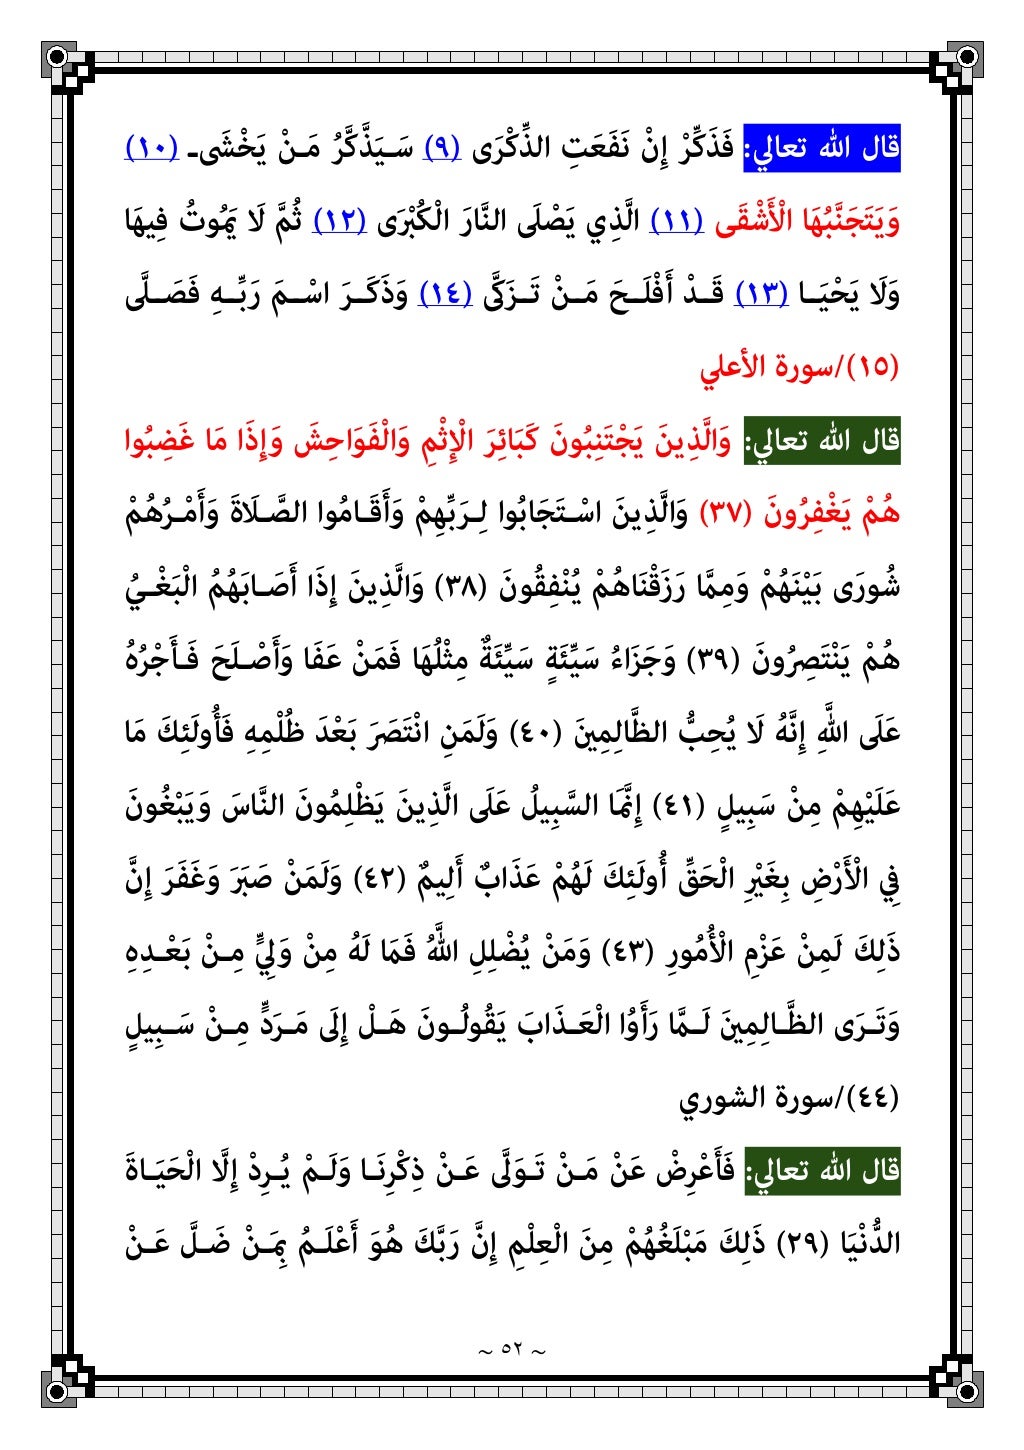 قال الله تعالي: فَذَكِّرْ إِنْ نَفَعَتِ الذِّكْرَى (٩) سَيَذَّكَّرُ مَنْ يَخْشَى (١٠)
وَيَتَجَنَّبُهَا الْأَشْقَى (١١) الَّذِي يَصْلَى النَّارَ الْكُبْرَى (١٢) ثُمَّ لَا يَمُوتُ فِيهَا
وَلَا يَحْيَا (١٣) قَدْ أَفْلَحَ مَنْ تَزَكَّى (١٤) وَذَكَرَ اسْمَ رَبِّهِ فَصَلَّى
(١٥)/سورة الأعلي
قال الله تعالي: وَالَّذِينَ يَجْتَنِبُونَ كَبَائِرَ الْإِثْمِ وَالْفَوَاحِشَ وَإِذَا مَا غَضِبُوا
هُمْ يَغْفِرُونَ (٣٧) وَالَّذِينَ اسْتَجَابُوا لِرَبِّهِمْ وَأَقَامُوا الصَّلَاةَ وَأَمْرُهُمْ
شُورَى بَيْنَهُمْ وَمِمَّا رَزَقْنَاهُمْ يُنْفِقُونَ (٣٨) وَالَّذِينَ إِذَا أَصَابَهُمُ الْبَغْيُ
هُمْ يَنْتَصِرُونَ (٣٩) وَجَزَاءُ سَيِّئَةٍ سَيِّئَةٌ مِثْلُهَا فَمَنْ عَفَا وَأَصْلَحَ فَأَجْرُهُ
عَلَى اللَّهِ إِنَّهُ لَا يُحِبُّ الظَّالِمِينَ (٤٠) وَلَمَنِ انْتَصَرَ بَعْدَ ظُلْمِهِ فَأُولَئِكَ مَا
عَلَيْهِمْ مِنْ سَبِيلٍ (٤١) إِنَّمَا السَّبِيلُ عَلَى الَّذِينَ يَظْلِمُونَ النَّاسَ وَيَبْغُونَ
فِي الْأَرْضِ بِغَيْرِ الْحَقِّ أُولَئِكَ لَهُمْ عَذَابٌ أَلِيمٌ (٤٢) وَلَمَنْ صَبَرَ وَغَفَرَ إِنَّ
ذَلِكَ لَمِنْ عَزْمِ الْأُمُورِ (٤٣) وَمَنْ يُضْلِلِ اللَّهُ فَمَا لَهُ مِنْ وَلِيٍّ مِنْ بَعْدِهِ
وَتَرَى الظَّالِمِينَ لَمَّا رَأَوُا الْعَذَابَ يَقُولُونَ هَلْ إِلَى مَرَدٍّ مِنْ سَبِيلٍ
(٤٤)/سورة الشوري
قال الله تعالي: فَأَعْرِضْ عَنْ مَنْ تَوَلَّى عَنْ ذِكْرِنَا وَلَمْ يُرِدْ إِلَّا الْحَيَاةَ
الدُّنْيَا (٢٩) ذَلِكَ مَبْلَغُهُمْ مِنَ الْعِلْمِ إِنَّ رَبَّكَ هُوَ أَعْلَمُ بِمَنْ ضَلَّ عَنْ
~ ٥٢ ~